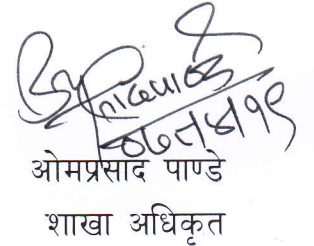 ओमप्रसाद पाण्डे
शाखा अधिकृत